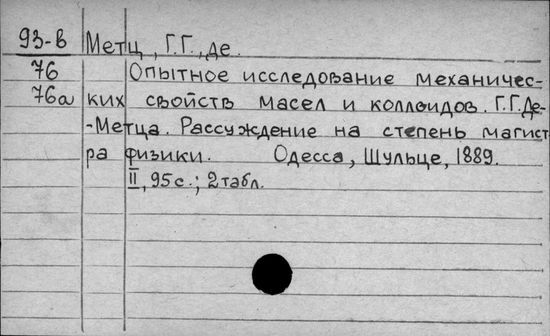 93-в Метц, Г.Г., де.
76 Опытное исследование механичес-
76а ких свойств масел и коллоидов. Г.Г. Де-
-Метца. Рассуждение на степень магист
ра физики. Одесса, Шульце, 1889.
II, 95 с.; 2 табл.